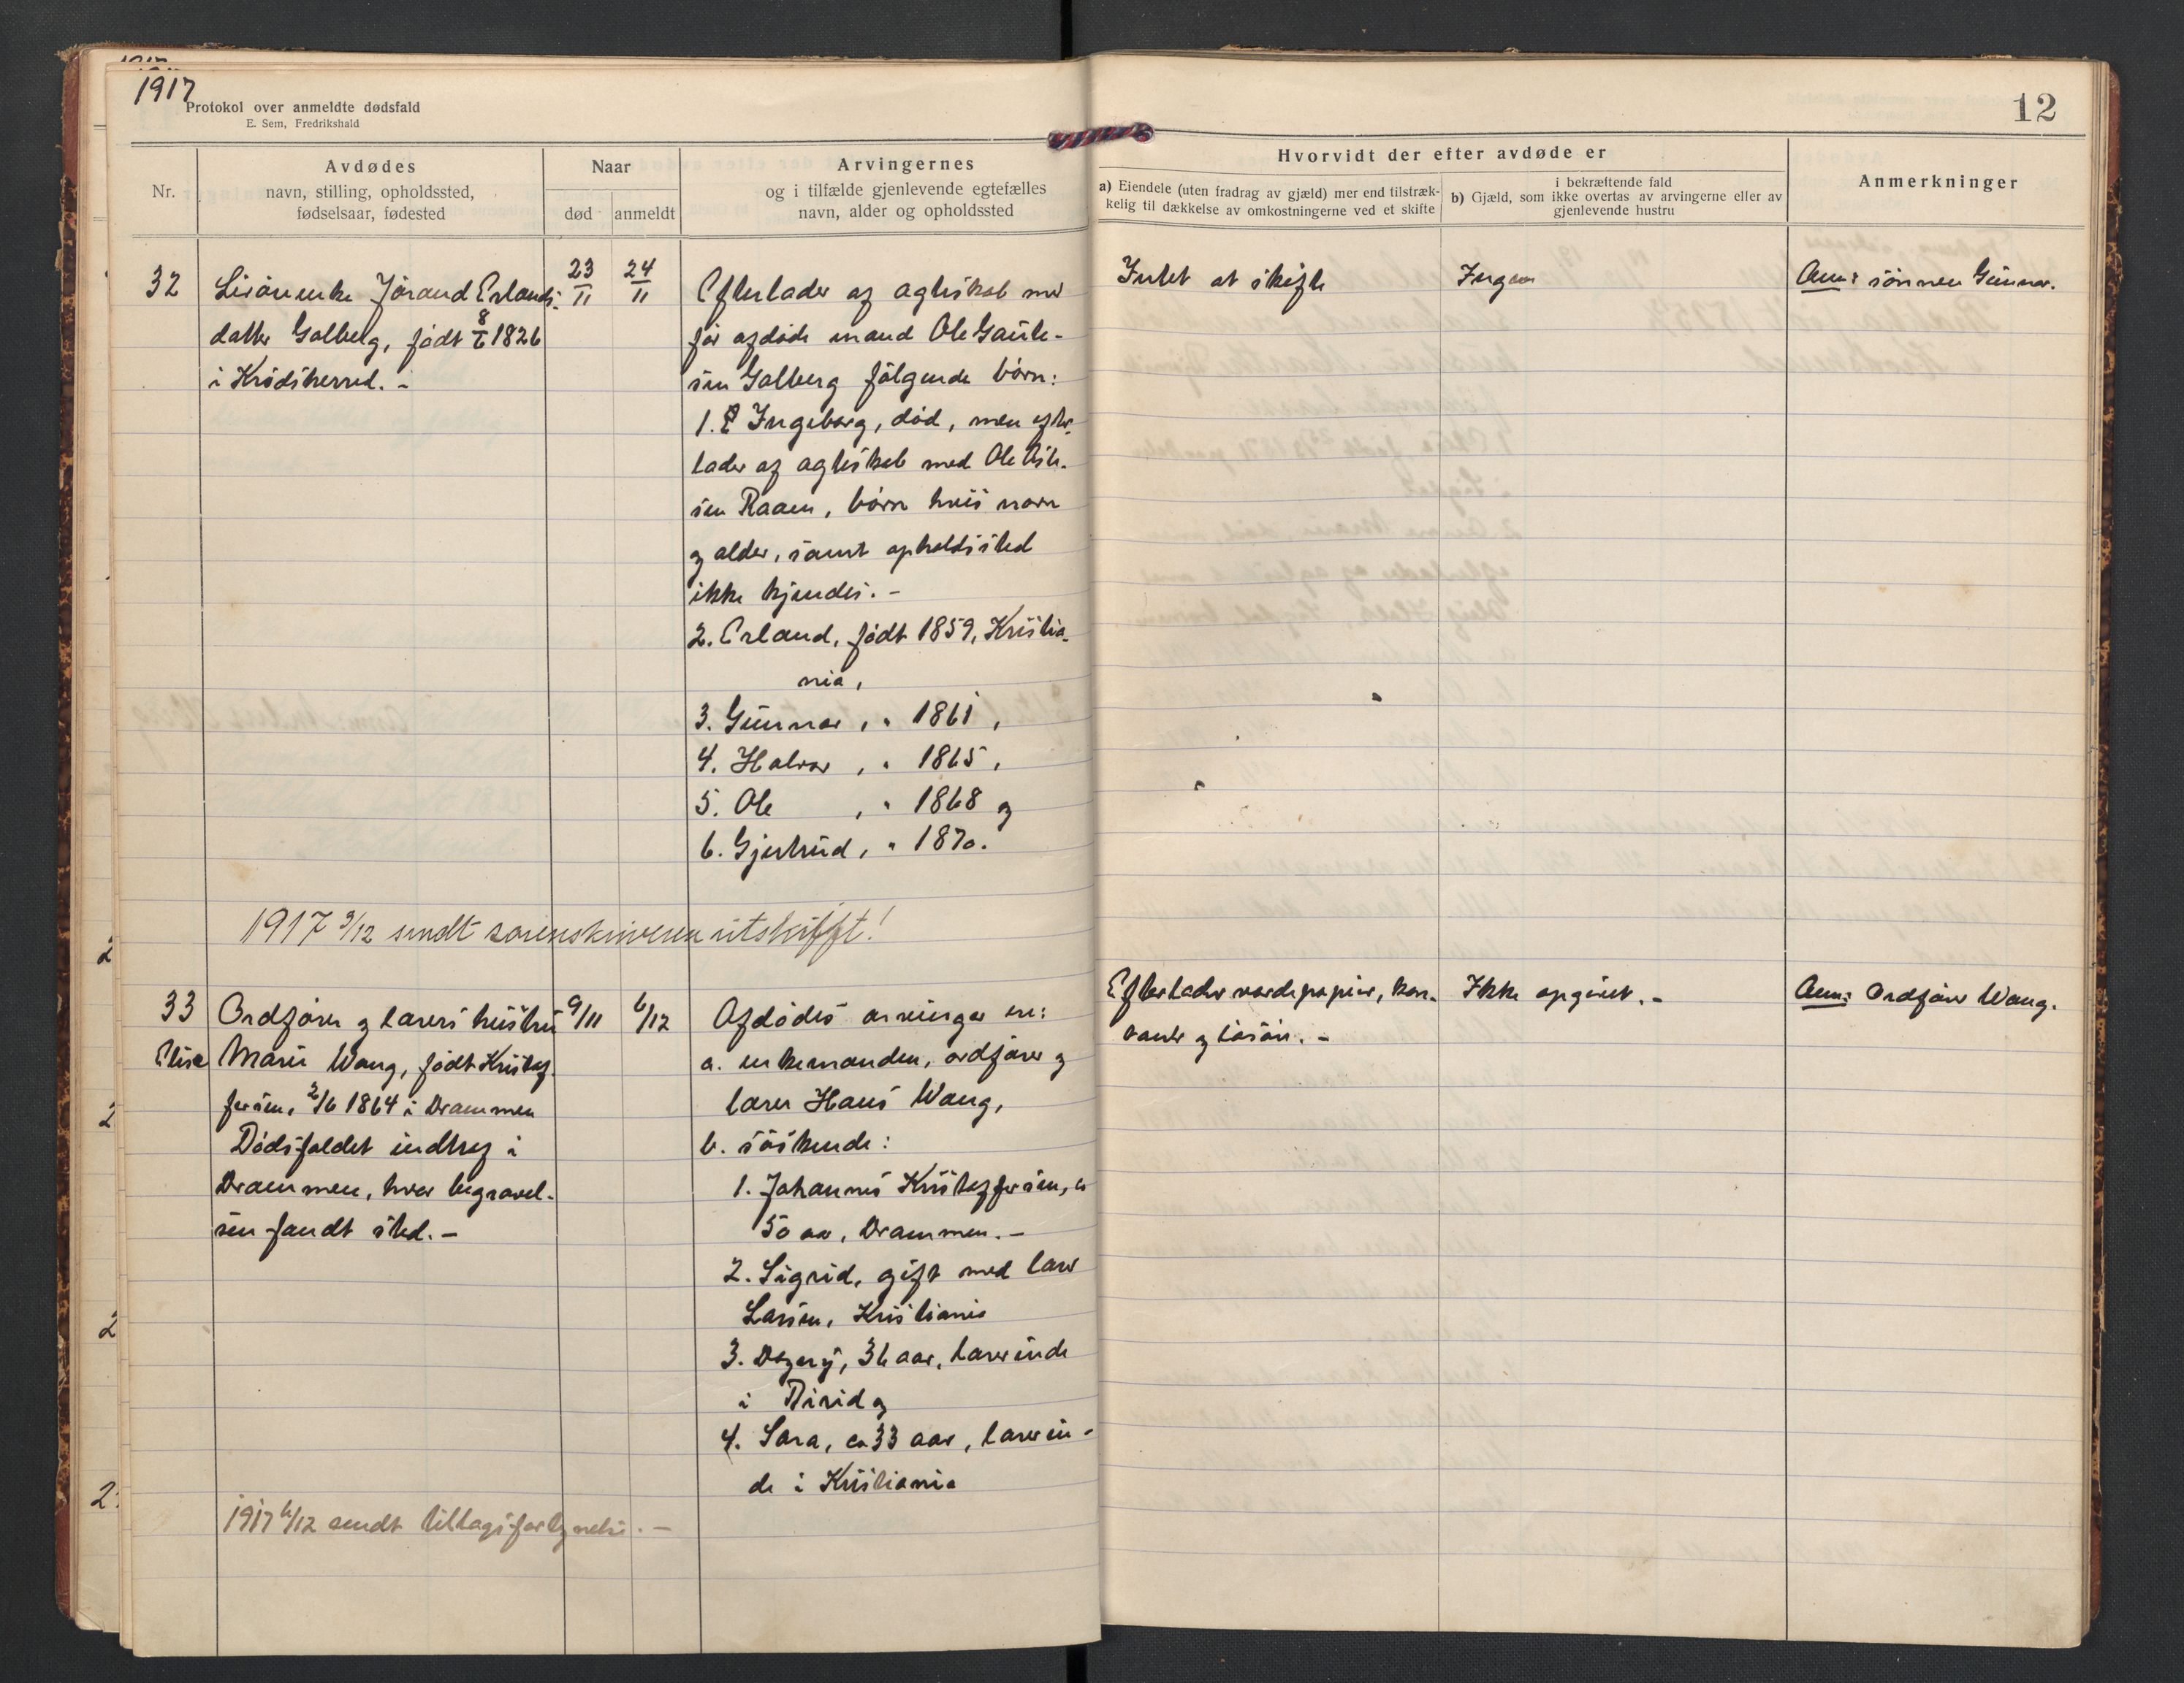 1917
Protokol over anmeldte dødsfald
E. Sem, Fredrikshald
12
Nr.
Avdødes
navn, stilling, opholdssted,
fødselsaar, fødested
Naar
død
anmeldt
Arvingernes
og i tilfælde gjenlevende egtefælles
navn, alder og opholdssted
Hvorvidt der efter avdøde er
a) Eiendele (uten fradrag av gjæld) mer end tilstræk-
kelig til dækkelse av omkostningerne ved et skifte
i bekræftende fald
b) Gjæld, som ikke overtas av arvingerne eller av
gjenlevende hustru
Anmerkninger
32
Livørenke Jørand Erlands-
datter Golberg, født 8/6 1826
i Krødsherred. -
23/11
24/11
Efterlader af ægteskab med
før afdøde mand Ole Gaute-
sen Golberg følgende børn:
1. Ingeborg, død, men efter-
lader af ægteskab med Ole
sen Raaen, børn hvis navn
og alder, samt opholdssted
ikke kjendes. -
2. Erland, født 1859, Kristia-
nia,
3. Gunnar, " 1861,
4. Halvor, " 1865,
5. Ole, " 1868 og
6. Gjertrud, " 1870.
Intet at skifte
Ingen
Anm: sønnen Gunnar.
1917 3/12 sendt sorenskriveren utskrift!
33
Ordfører og lærers hustru
Elise Marie Wang, født Kristof-
fersen, 2/6 1864 i Drammen
Dødsfaldet indtraf i
Drammen, hvor begravel-
sen fandt sted. -
9/11
6/12
Afdødes arvinger ere:
a. enkemanden, ordfører og
lærer Hans Wang,
b. søskende:
1. Johannes Kristoffersen, ca
50 aar, Drammen. -
2. Sigrid, gift med lærer
Larsen, Kristiania
3. Dagny, 36 aar, lærerinde
i Birid og
4. Sara, ca 33 aar, lærerin-
de i Kristiania
Efterlader værdipapirer, kon-
tanter og løsøre. -
Ikke opgivet. -
Anm: Ordfører Wang.
1917 6/12 sendt tillagsfortegnelse. -